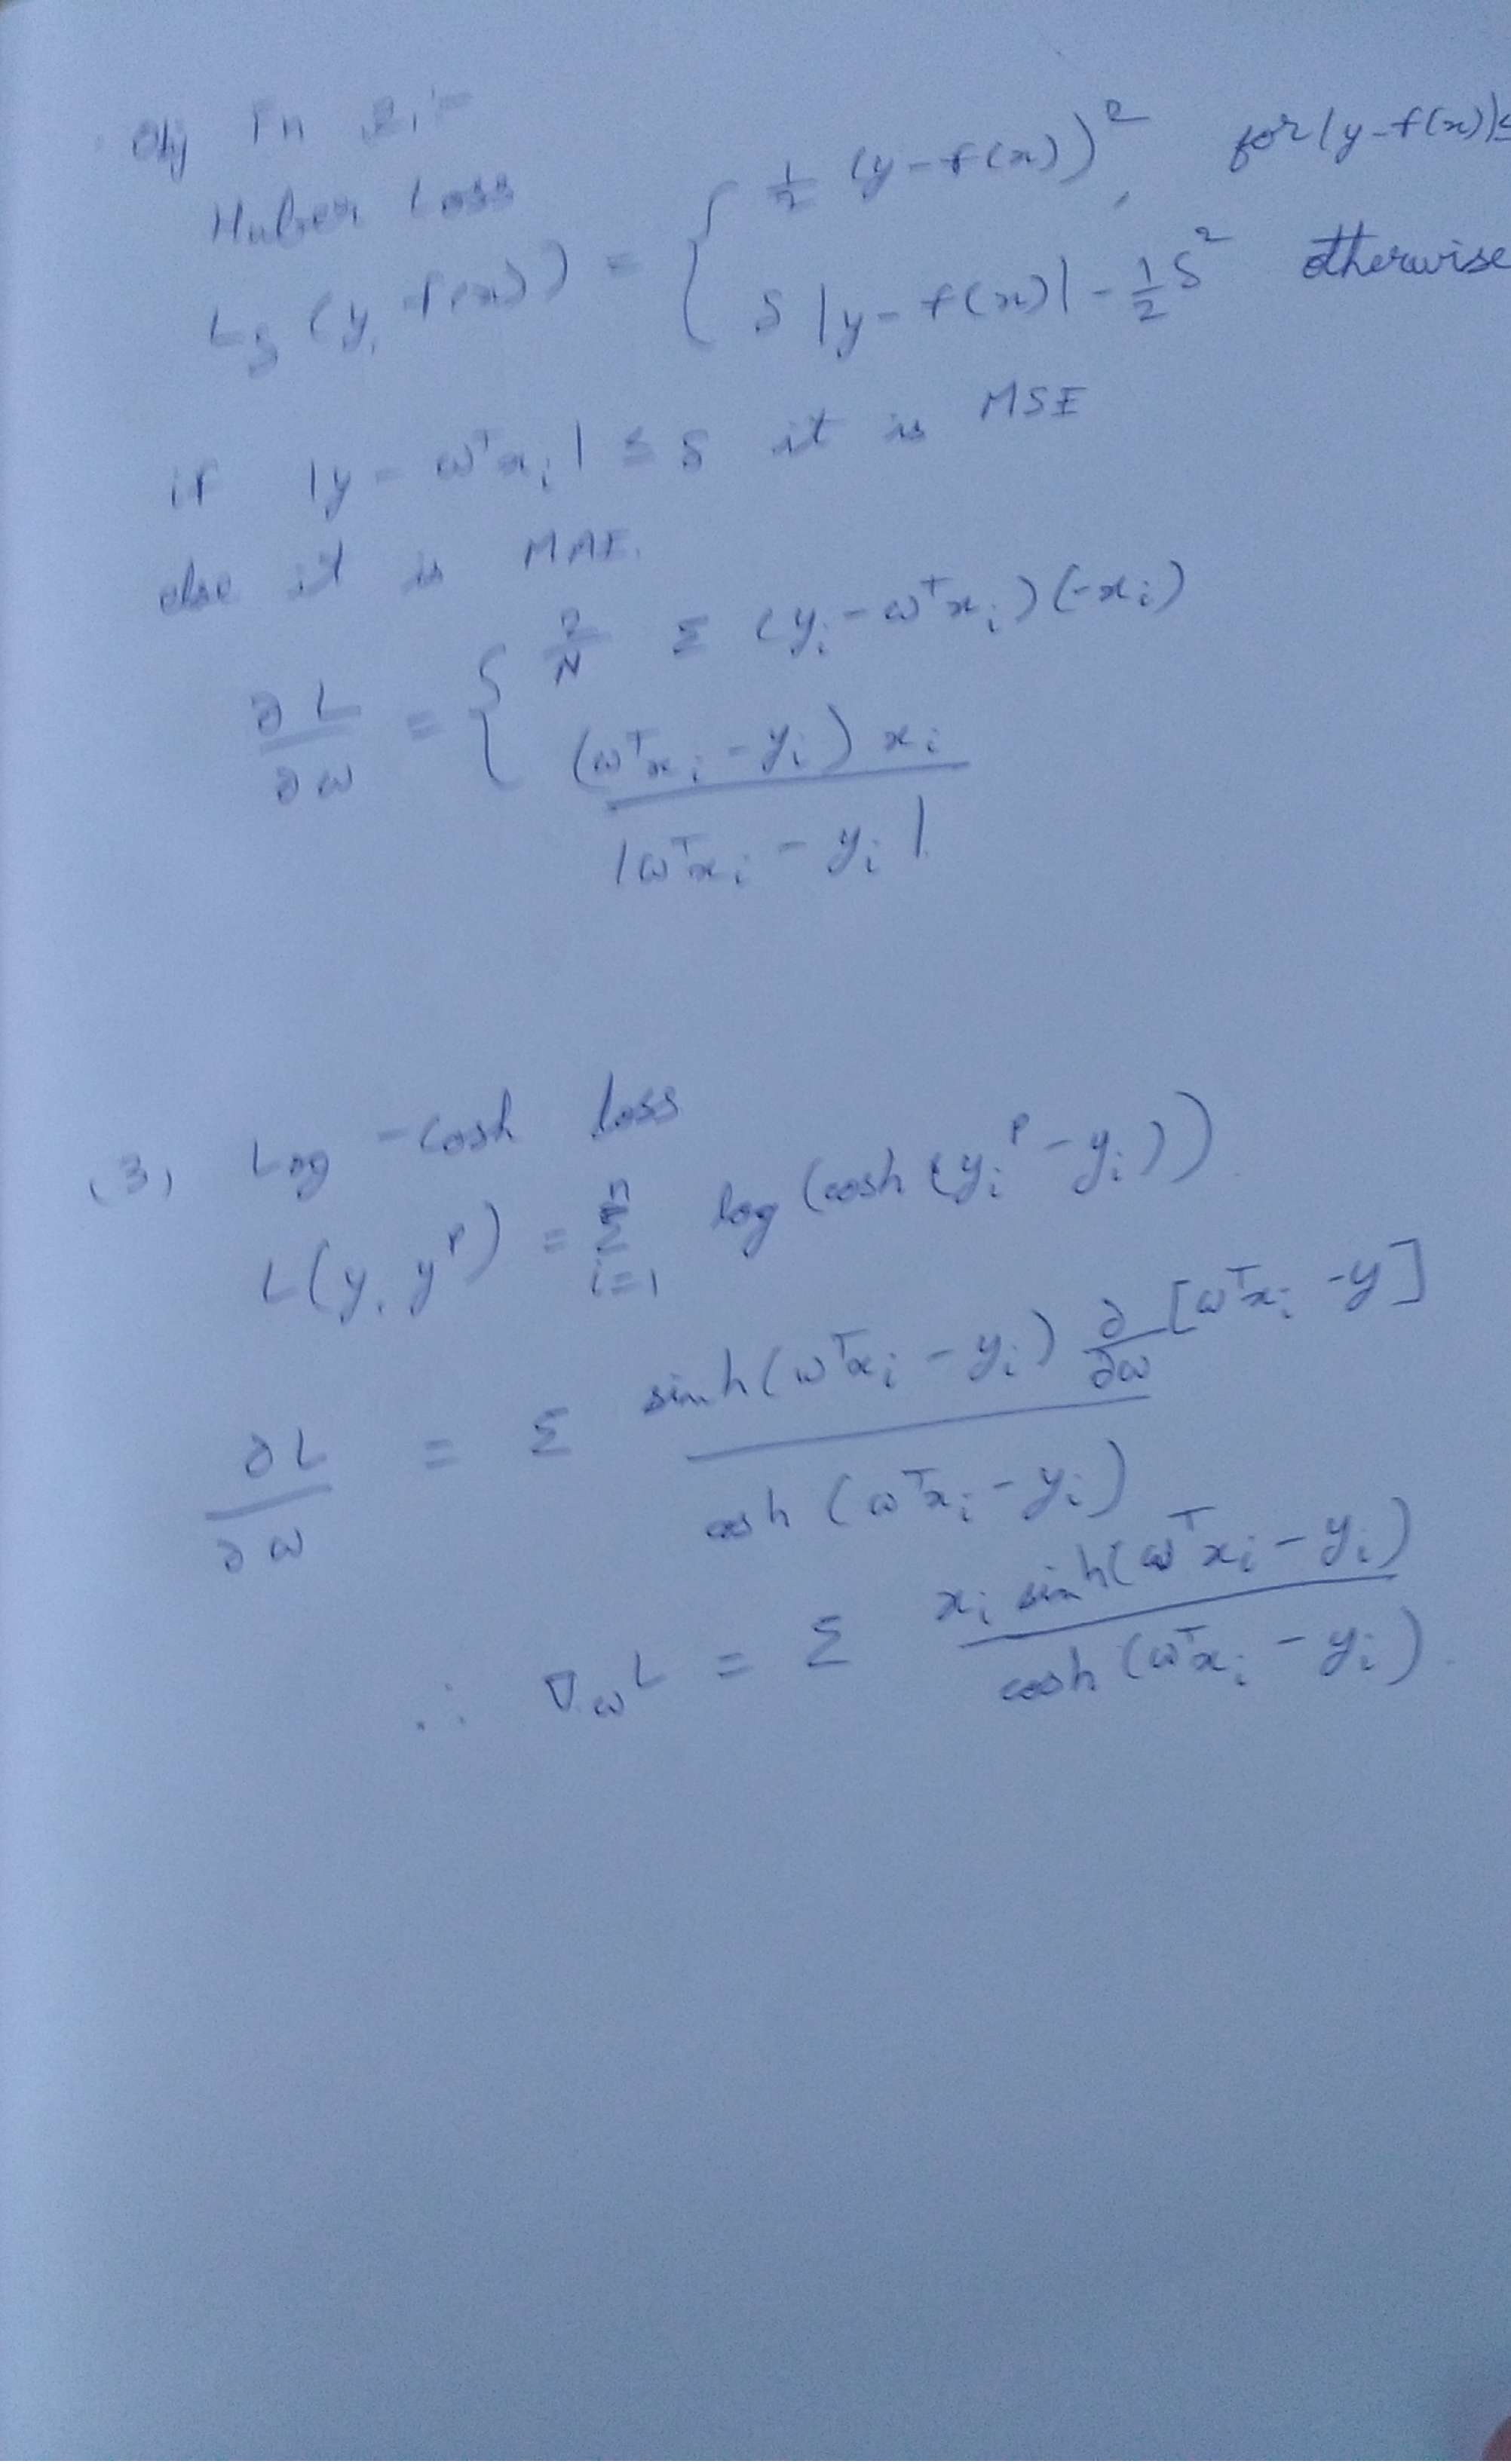 Obj Fn 2:-
Huber Loss
L_δ (y, f(x)) = { 1/2 (y-f(x))², for |y-f(x)|≤
δ |y-f(x)| - 1/2 δ² otherwise
if |y - ωᵀxᵢ| ≤ δ it is MSE
else it is MAE.
∂L/∂ω = { 2/N Σ (yᵢ - ωᵀxᵢ)(-xᵢ)
(ωᵀxᵢ - yᵢ) xᵢ / |ωᵀxᵢ - yᵢ|
(3) Log-cosh loss
L(y, yᵖ) = Σ_{i=1}^{n} log(cosh(yᵢᵖ - yᵢ))
∂L/∂ω = Σ sinh(ωᵀxᵢ - yᵢ) ∂/∂ω [ωᵀxᵢ - y] / cosh(ωᵀxᵢ - yᵢ)
∴ ∇_ω L = Σ xᵢ sinh(ωᵀxᵢ - yᵢ) / cosh(ωᵀxᵢ - yᵢ).